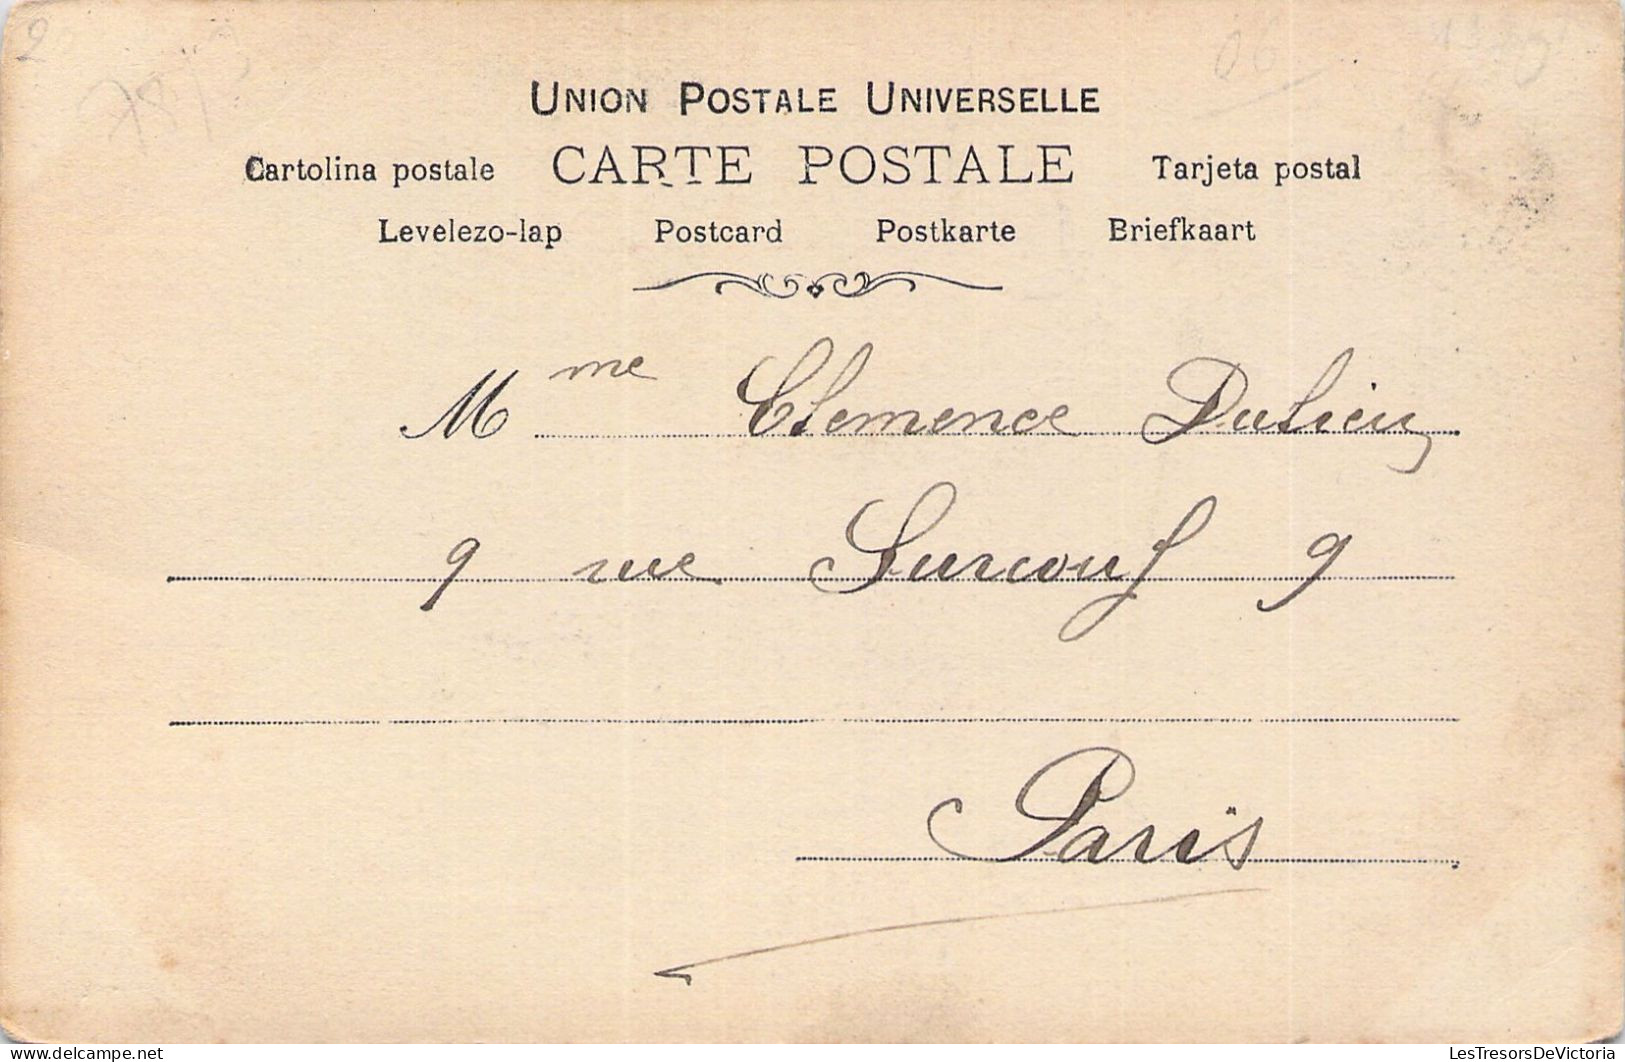 2
06
Union Postale Universelle
Cartolina postale CARTE POSTALE Tarjeta postal
Levelezo-lap Postcard Postkarte Briefkaart
Mme Clemence Dulieu
9 rue Surcouf 9
Paris
www.delcampe.net
LesTresorsDeVictoria